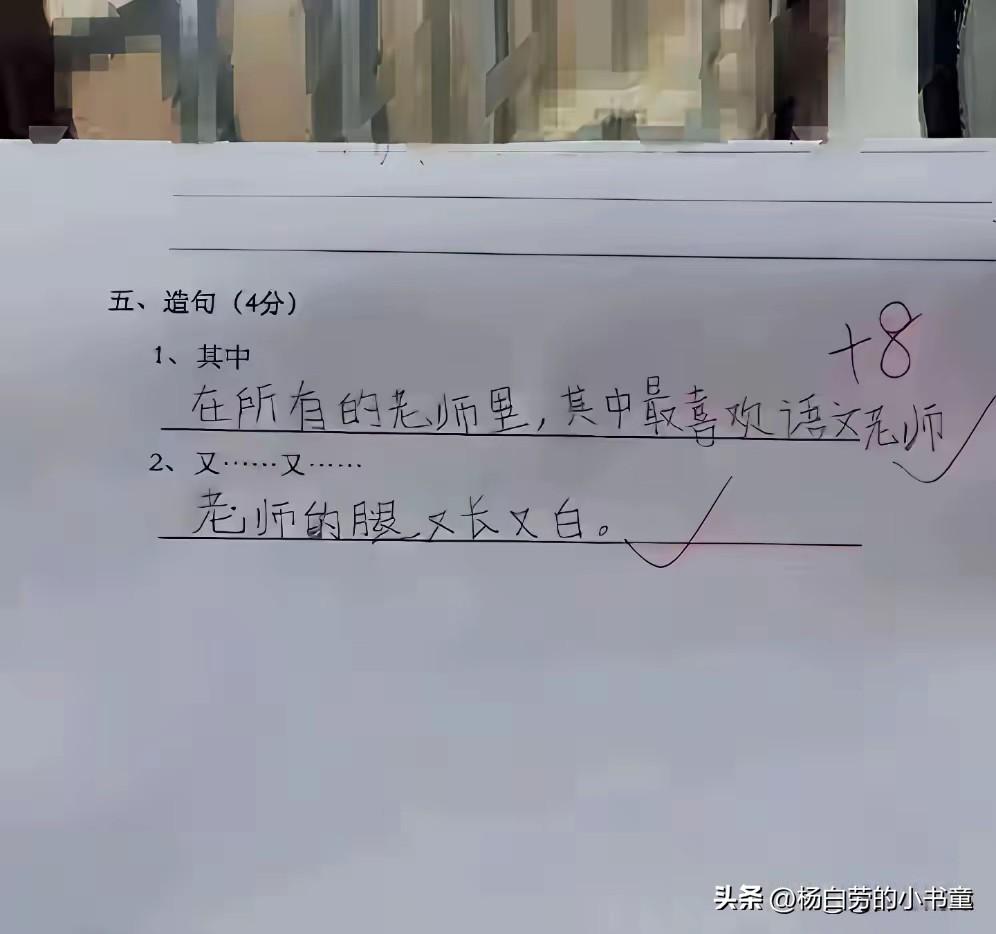 五、造句（4分）
+8
1、其中
在所有的老师里，其中最喜欢语文老师
2、又……又……
老师的腿又长又白。
头条 @杨白劳的小书童